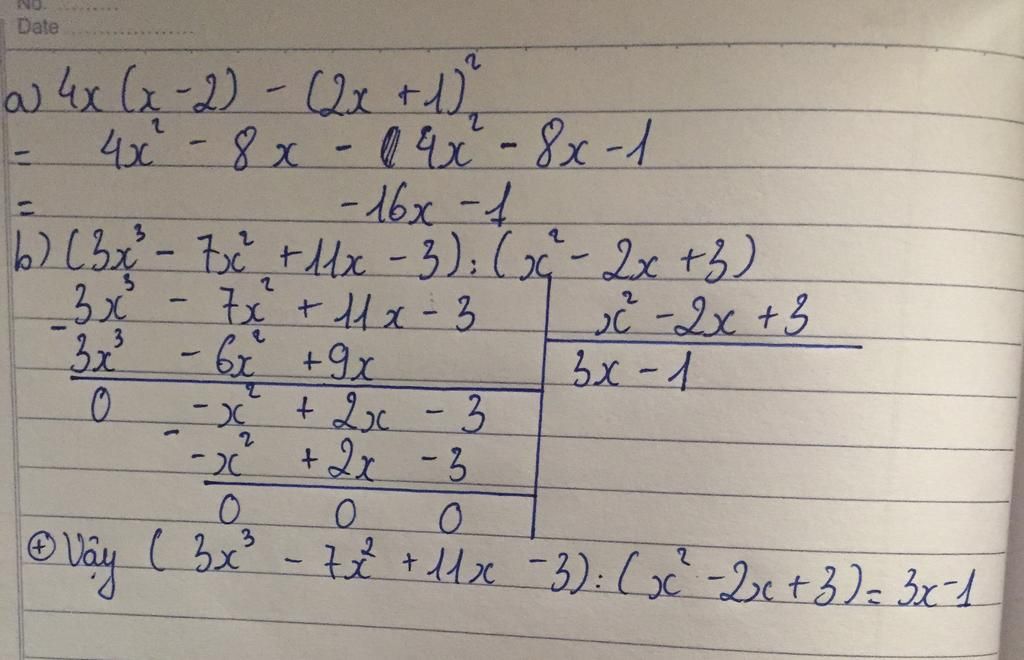 No. ..........
Date ......................
a) 4x (x - 2) - (2x + 1)²
= 4x² - 8x - 4x² - 8x - 1
= -16x - 1
b) (3x³ - 7x² + 11x - 3) : (x² - 2x + 3)
3x³ - 7x² + 11x - 3 | x² - 2x + 3
- 3x³ - 6x² + 9x | 3x - 1
0 - x² + 2x - 3
- - x² + 2x - 3
0 0 0
⊕ Vậy (3x³ - 7x² + 11x - 3) : (x² - 2x + 3) = 3x - 1